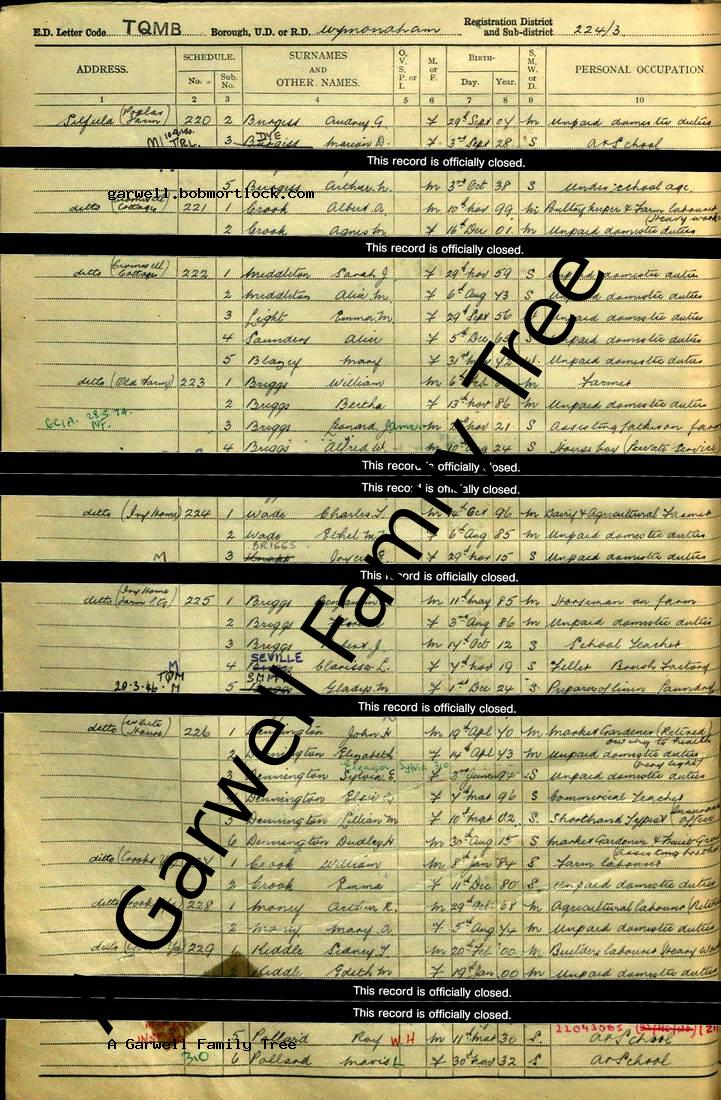 E.D. Letter Code TQMB Borough, U.D. or R.D. Wymondham Registration District and Sub-district 224/3
ADDRESS. SCHEDULE. SURNAMES AND OTHER NAMES. O, V, S, P, or I. M. or F. BIRTH- S, M, W, or D. PERSONAL OCCUPATION.
No. Sub. No. Day. Year.
1 2 3 4 5 6 7 8 9 10
220 2 Burgiss Audrey G. F 29th Sept 04 M Unpaid domestic duties
DYE
M TRL. 3 Burgiss Marion D. F 3rd Sept 28 S At School
This record is officially closed.
5 Burgiss Arthur M 3rd Oct 38 S Under school age
garwell.bobmortlock.com
ditto 221 1 Crook Albert A. M 10th Nov 99 M Poultry keeper & Farm labourer
(Heavy work)
2 Crook Agnes M. F 16th Dec 01 M Unpaid domestic duties
This record is officially closed.
ditto Cottages 222 1 Middleton Sarah J. F 29th Nov 59 S Unpaid domestic duties
2 Middleton Alice M. F 6th Aug 73 S Unpaid domestic duties
3 Light Emma M. F 29th Sept 56 Unpaid domestic duties
4 Saunders Alice F 5th Dec Unpaid domestic duties
5 Blazey Mary F 31st Unpaid domestic duties
ditto (Old Farm) 223 1 Briggs William M 6th Feb M Farmer
2 Briggs Bertha F 13th Nov 86 M Unpaid domestic duties
3 Briggs Leonard James M 2nd Nov 21 S Assisting father on farm
4 Briggs Alfred W. M 10th Aug 24 S House boy (Private Service)
This record is officially closed.
This record is officially closed.
ditto (Ivy Home) 224 1 Wade Charles T. M 4th Oct 96 M Dairy & Agricultural Farmer
2 Wade Ethel M. F 6th Aug 85 M Unpaid domestic duties
BRIGGS
M 3 Joyce E. F 29th Nov 15 S Unpaid domestic duties
This record is officially closed.
ditto (Ivy Home 225 1 Briggs Benjamin M 11th May 85 M Horseman on farm
2 Briggs F 3rd Aug 86 M Unpaid domestic duties
3 Briggs J. M 14th Oct 12 S School Teacher
SEVILLE
M 4 Briggs Clarissa L. F 4th Nov 19 S Filler Brush Factory
TQM SMITH
20-3-46. M 5 Briggs Gladys M. F 1st Dec 24 S Preparer of linen Laundry
This record is officially closed.
ditto (White House) 226 1 Dennington John H M 19th Apl 70 M Market Gardener (Retired)
owing to health
2 Dennington Elizabeth F 14th Apl 73 M Unpaid domestic duties
Eleanor Sylvia 310 (very light)
3 Dennington Sylvia E. F 3rd June 94 S Unpaid domestic duties
Dennington Elsie F 4th Mar 96 S Commercial Teacher
5 Dennington Lillian M F 10th Mar 02 S Shorthand Typist Insurance office
6 Dennington Dudley H M 30th Aug 15 S Market Gardener & Fruit Grower
assisting
ditto 1 Crook William M 8th Jan 84 S Farm labourer
2 Crook Emma F 11th Dec 80 S Unpaid domestic duties
ditto 228 1 Money Arthur R. M 29th Oct 68 M Agricultural labourer (Retired)
2 Money Mary A. F 5th Aug 74 M Unpaid domestic duties
ditto 229 1 Kiddle Sidney T. M 20th Feb 00 M Builders labourer Heavy Work
2 Kiddle Edith M. F 19th Jan 00 M Unpaid domestic duties
This record is officially closed.
This record is officially closed.
5 Pollard Roy W.H M 11th Mar 30 S. At School
310 6 Pollard Mavis L F 30th Nov 32 S At School
A Garwell Family Tree
A Garwell Family Tree